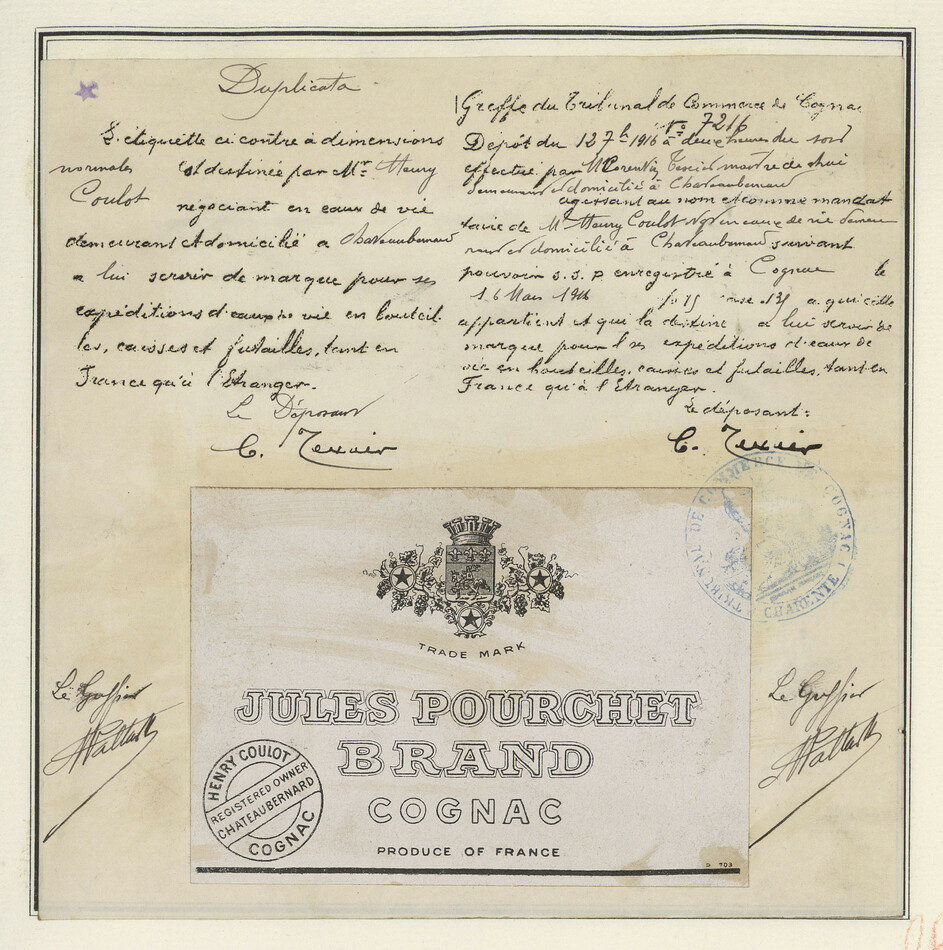 Duplicata
L'étiquette ci contre à dimensions
normales est destinée par Mr Henry
Coulot négociant en eaux de vie
demeurant et domicilié a Chateaubernard
a lui servir de marque pour ses
expéditions d'eaux de vie en bouteil
les, caisses et futailles, tant en
France qu'à l'Etranger.
Le Déposant
C. Texier
Greffe du Tribunal de Commerce de Cognac
No 7216
Dépôt du 12 7b 1916 à deux heures du soir
effectué par M
demeurant et domicilié à Chateaubernard
agissant au nom et comme mandat
taire de Mr Henry Coulot Ngt en eaux de vie demeu
rant et domicilié à Chateaubernard suivant
pouvoir s. s. p enregistré à Cognac le
16 Mars 1916 fo 75 case 135 a qui cette
appartient et qui la destine a lui servir de
marque pour ses expéditions d'eaux de
vie en bouteilles, caisses et futailles, tant en
France qu'à l'Etranger.
Le déposant:
C. Texier
TRIBUNAL DE COMMERCE DE COGNAC
CHARENTE
TRADE MARK
JULES POURCHET
BRAND
COGNAC
PRODUCE OF FRANCE
D. 703
HENRY COULOT
REGISTERED OWNER
CHATEAUBERNARD
COGNAC
Le Greffier
Le Greffier